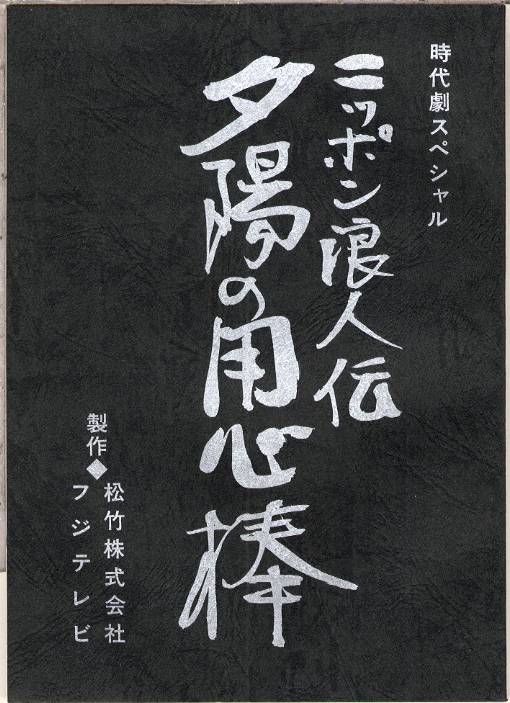 時代劇スペシャル
ニッポン浪人伝
夕陽の用心棒
製作◆松竹株式会社
フジテレビ